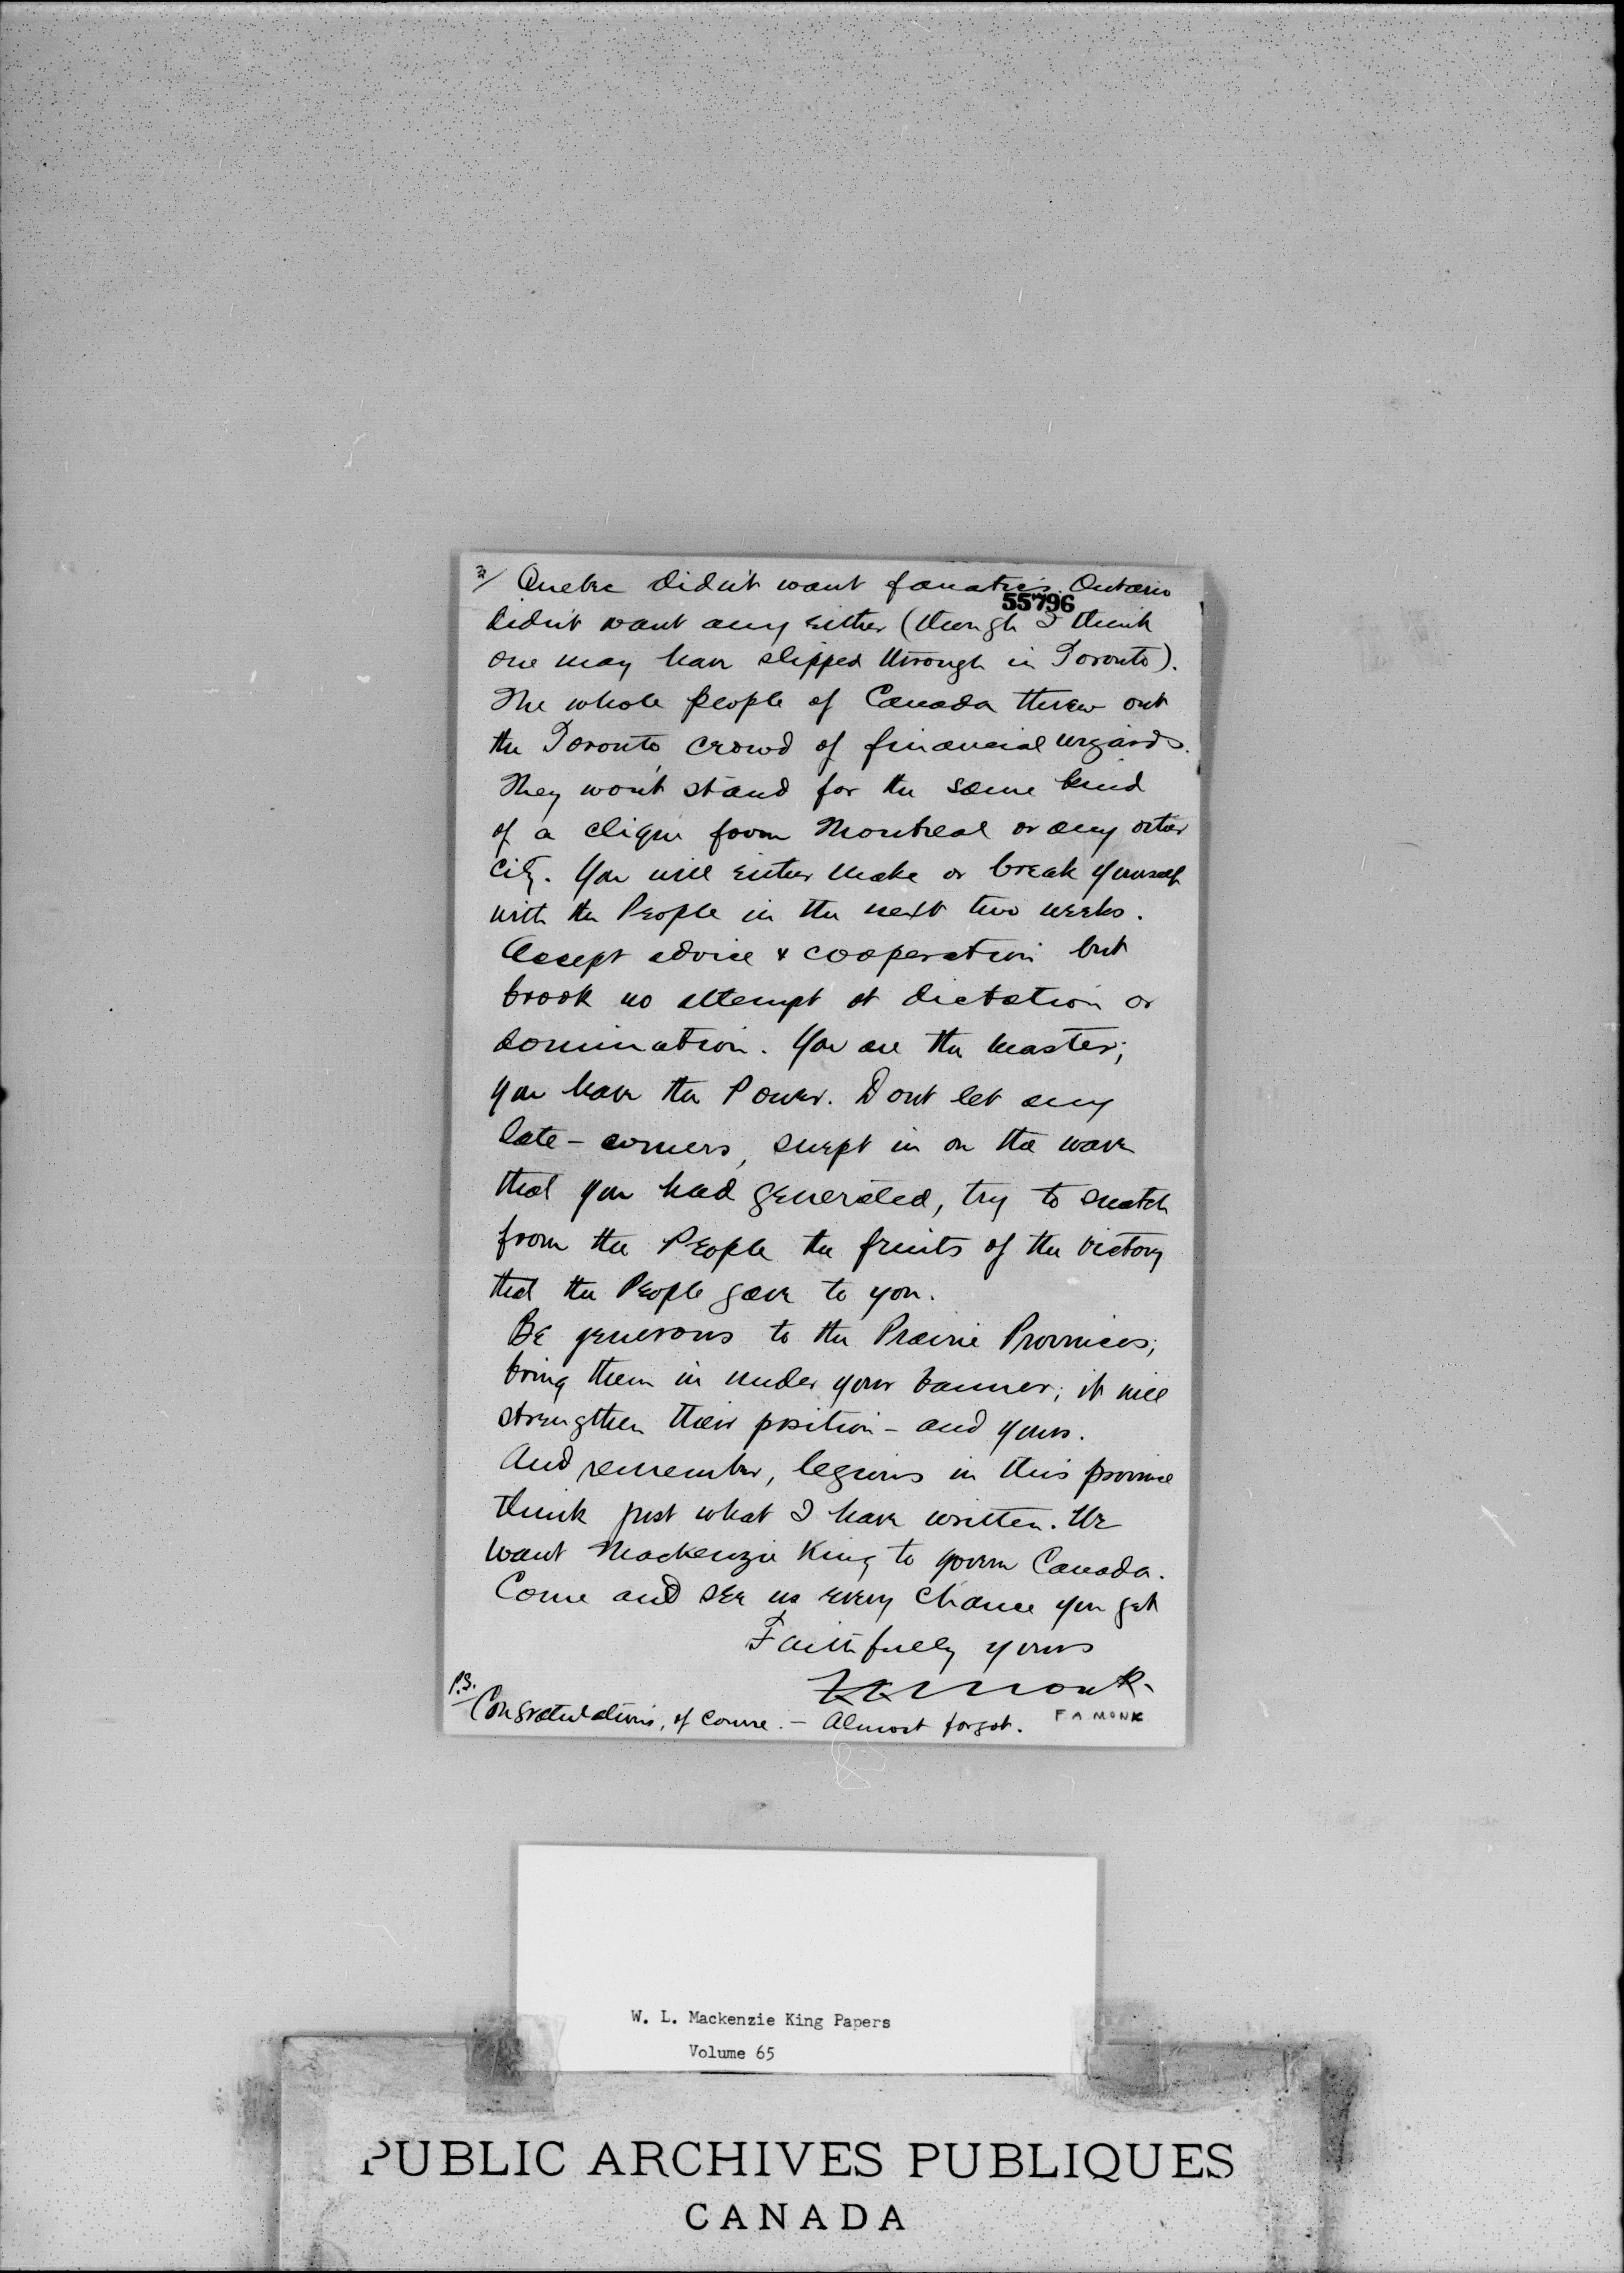 3/ Quebec didn't want fanatics. Ontario
55796
didn't want any either (though I think
one may have slipped through in Toronto).
The whole people of Canada threw out
the Toronto crowd of financial wizards.
They won't stand for the same kind
of a clique from Montreal or any other
city. You will either make or break yourself
with the People in the next two weeks.
Accept advice & cooperation but
brook no attempt at dictation or
domination. You are the master;
you have the Power. Dont let any
late-comers, swept in on the wave
that you had generated, try to snatch
from the People the fruits of the victory
that the People gave to you.
Be generous to the Prairie Provinces;
bring them in under your banner; it will
strengthen their position - and yours.
And remember, legions in this province
think just what I have written. We
want Mackenzie King to govern Canada.
Come and see us every chance you get
Faithfully yours
F A Monk.
P.S. Congratulations, of course. - Almost forgot.
F A MONK
W. L. Mackenzie King Papers
Volume 65
PUBLIC ARCHIVES PUBLIQUES
CANADA